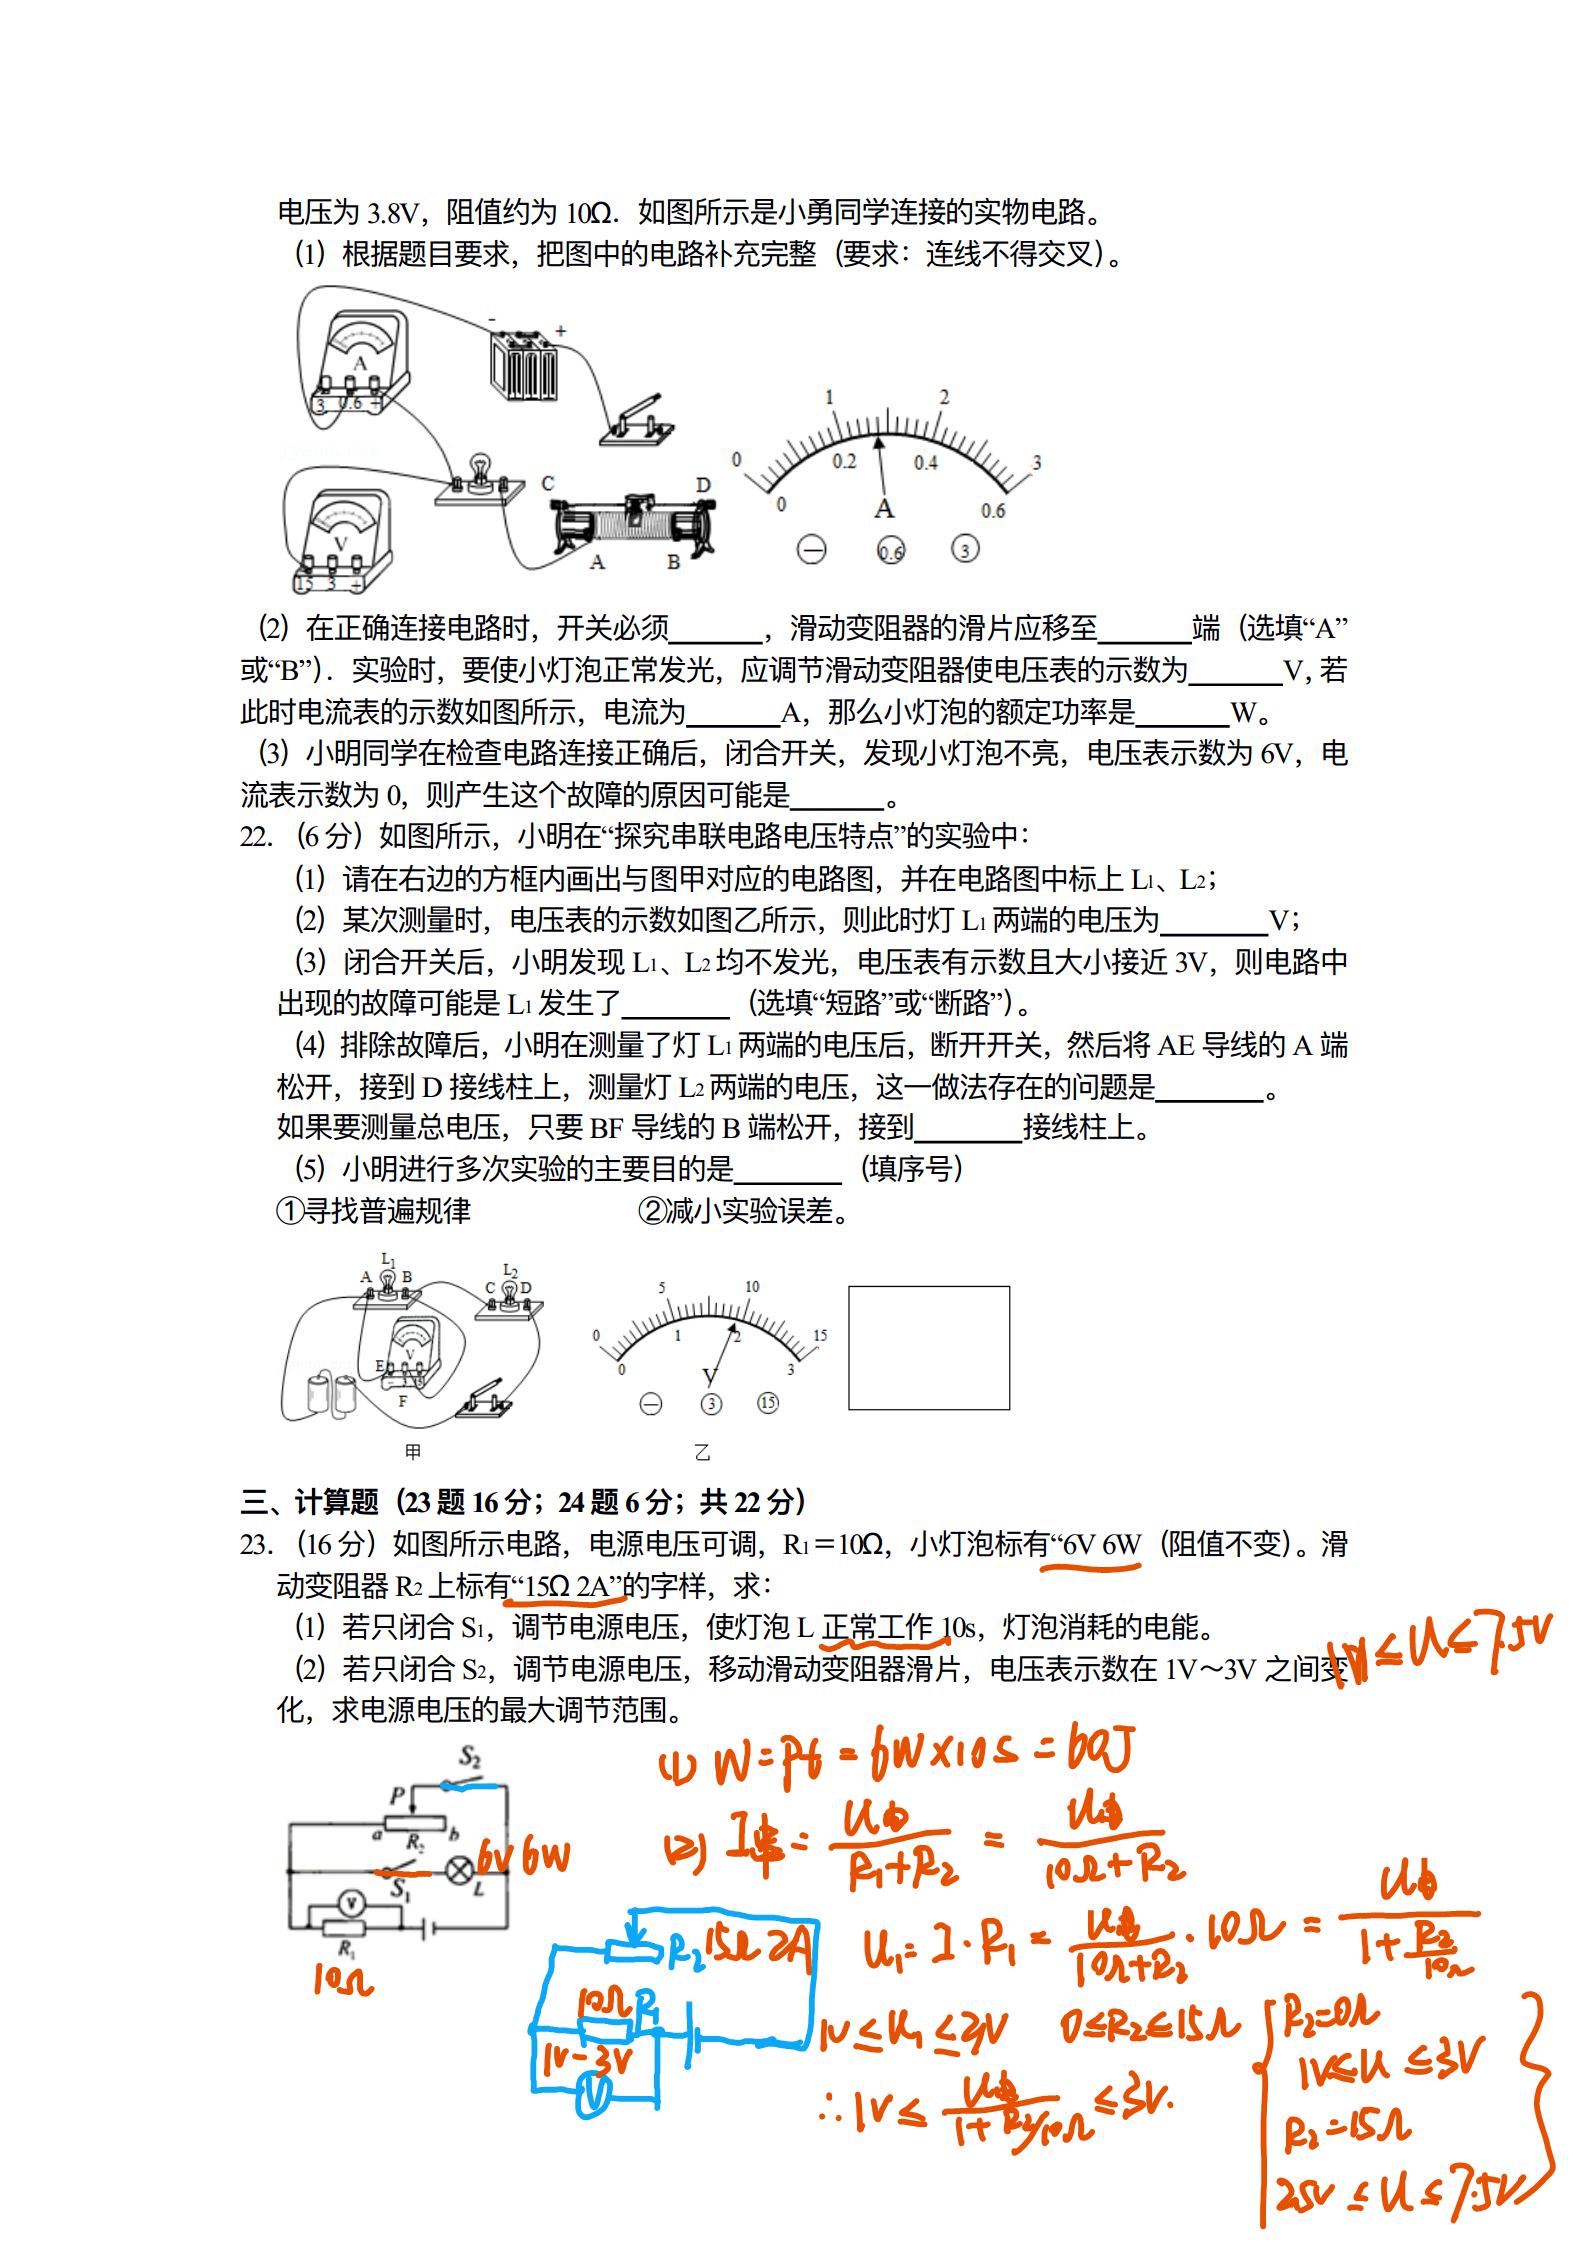 电压为 3.8V，阻值约为 10Ω．如图所示是小勇同学连接的实物电路。
（1）根据题目要求，把图中的电路补充完整（要求：连线不得交叉）。
- +
A
3 0.6 +
V
15 3 +
C D
A B
0 1 2 3
0 0.2 0.4 0.6
A
− 0.6 3
（2）在正确连接电路时，开关必须______，滑动变阻器的滑片应移至______端（选填“A”
或“B”）．实验时，要使小灯泡正常发光，应调节滑动变阻器使电压表的示数为______V，若
此时电流表的示数如图所示，电流为______A，那么小灯泡的额定功率是______W。
（3）小明同学在检查电路连接正确后，闭合开关，发现小灯泡不亮，电压表示数为 6V，电
流表示数为 0，则产生这个故障的原因可能是______。
22．（6 分）如图所示，小明在“探究串联电路电压特点”的实验中：
（1）请在右边的方框内画出与图甲对应的电路图，并在电路图中标上 L1、L2；
（2）某次测量时，电压表的示数如图乙所示，则此时灯 L1 两端的电压为_______V；
（3）闭合开关后，小明发现 L1、L2 均不发光，电压表有示数且大小接近 3V，则电路中
出现的故障可能是 L1 发生了_______（选填“短路”或“断路”）。
（4）排除故障后，小明在测量了灯 L1 两端的电压后，断开开关，然后将 AE 导线的 A 端
松开，接到 D 接线柱上，测量灯 L2 两端的电压，这一做法存在的问题是_______。
如果要测量总电压，只要 BF 导线的 B 端松开，接到_______接线柱上。
（5）小明进行多次实验的主要目的是_______（填序号）
①寻找普遍规律 ②减小实验误差。
L1 A B
L2 C D
V
E
F
甲
0 5 10 15
0 1 2 3
V
− 3 15
乙
三、计算题（23 题 16 分；24 题 6 分；共 22 分）
23．（16 分）如图所示电路，电源电压可调，R1＝10Ω，小灯泡标有“6V 6W（阻值不变）。滑
动变阻器 R2 上标有“15Ω 2A”的字样，求：
（1）若只闭合 S1，调节电源电压，使灯泡 L 正常工作 10s，灯泡消耗的电能。
（2）若只闭合 S2，调节电源电压，移动滑动变阻器滑片，电压表示数在 1V～3V 之间变
化，求电源电压的最大调节范围。
1V≤U≤7.5V
S2
P
a R2 b
6V 6W
S1 L
V
R1
10Ω
(1) W=Pt=6W×10s=60J
(2) I串=U电/(R1+R2)=U电/(10Ω+R2)
U1=I·R1=U电/(10Ω+R2)·10Ω=U电/(1+R2/10Ω)
R2 15Ω 2A
10Ω R1
1V-3V
V
1V≤U1≤3V 0≤R2≤15Ω
∴1V≤U电/(1+R2/10Ω)≤3V.
R2=0Ω
1V≤U≤3V
R2=15Ω
2.5V≤U≤7.5V